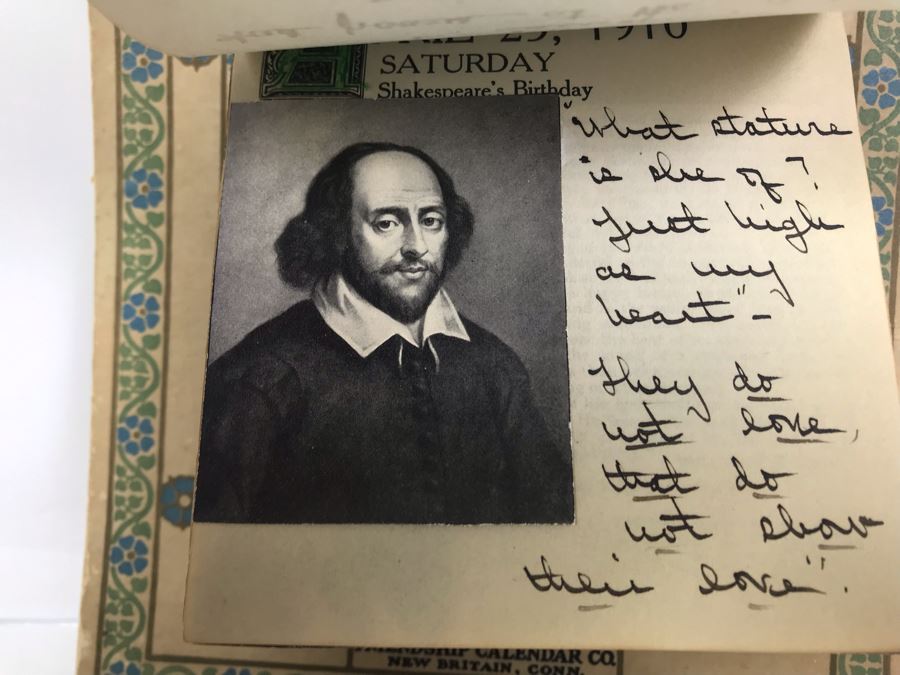 RIL 23, 1910
SATURDAY
Shakespeare's Birthday
"What stature
is she of?
Just high
as my
heart" -
They do
not love,
that do
not show
their love".
FRIENDSHIP CALENDAR CO.
NEW BRITAIN, CONN.